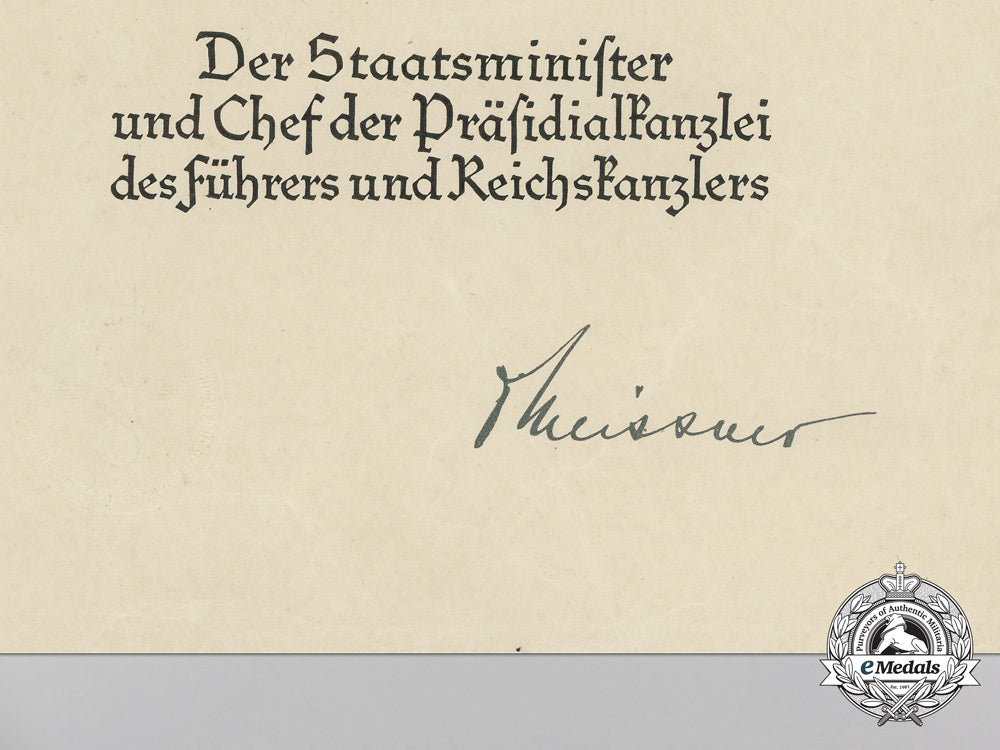 Der Staatsminiſter
und Chef der Präſidialkanzlei
des Führers und Reichskanzlers
Meissner
Purveyors of Authentic Militaria
eMedals
Est. 1985